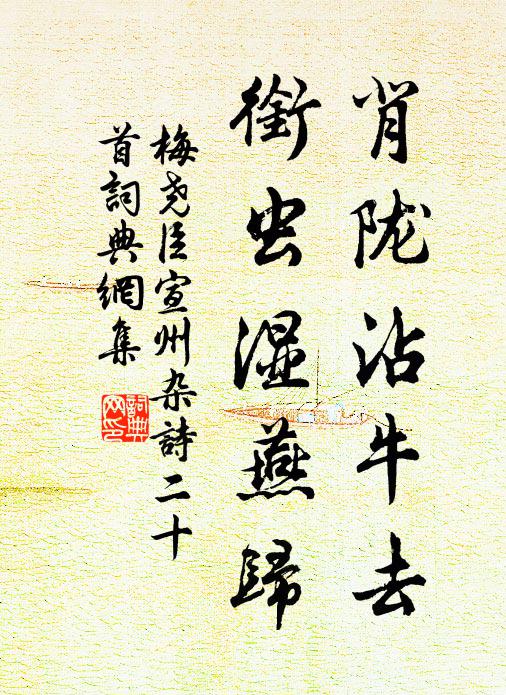 肖陇沾牛去
銜虫湿燕歸
梅尧臣宣州杂詩二十
首詞典網集
詞典网印